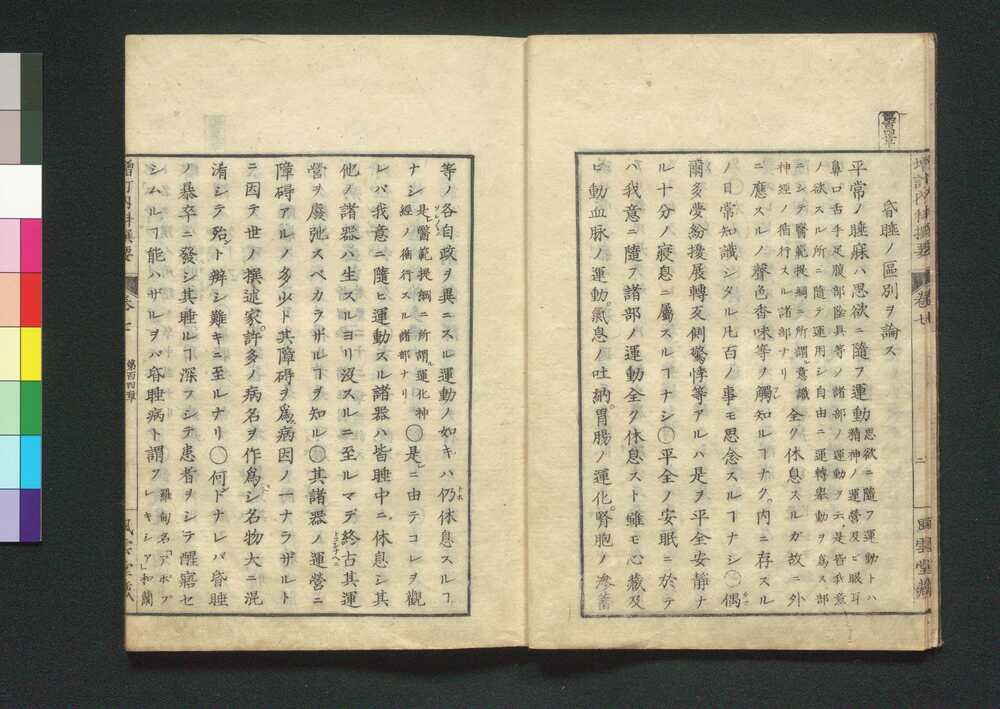 昏睡ノ區別ヲ論ス
平常ノ睡寐ハ思欲ニ隨フ運動
思欲ニ隨フ運動トハ
精神ノ運營及ヒ眼耳
鼻口舌手足腹部陰具等ノ諸部ノ運動ヲ云是皆我意
ノ欲スル所ニ隨テ運用シ自由ニ運轉擧動ヲ爲ス部
ニシテ醫範提綱ニ所謂意識
神經ノ循行スル諸部ナリ
全ク休息スルガ故ニ外
ニ應スルノ聲色香味等ノ觸知ルヿナク。内ニ存スル
ノ日常知識シタル凡百ノ事モ思念スルヿナシ○偶
爾多夢紛擾展轉反側驚悸等アルハ是ヲ平全安靜ナ
ル十分ノ寢息ニ屬スルヿナシ○平全ノ安眠ニ於テ
ハ我意ニ隨フ諸部ノ運動全ク休息スト雖モ心藏及
ヒ動血脉ノ運動。氣息ノ吐納。胃腸ノ運化。腎胞ノ滲蓄
等ノ各自政ヲ異ニスル運動ノ如キハ仍休息スルヿ
ナシ
是レ醫範提綱ニ所謂運化神
經ノ循行スル諸部ナリ
○是ニ由テコレヲ觀
レバ我意ニ隨ヒ運動スル諸器ハ皆睡中ニ休息シ其
他ノ諸器ハ生スルヨリ沒スルニ至ルマデ終古其運
營ヲ廢弛スベカラザルヿヲ知ル○其諸器ノ運營ニ
障碍アルノ多少ト其障碍ヲ爲ス病因ノ一ナラザルト
ニ因テ世ノ撰述家。許多ノ病名ヲ作爲シ名物大ニ混
淆シテ殆ント辨シ難キニ至ルナリ○何トナレバ昏睡
ノ暴卒ニ發シ其睡ルヿ深フシテ患者ヲシテ醒寤セ
シムルヿ能ハザルヲバ昏睡病ト謂フ
羅甸名「アポプ
レキシア」和蘭
増訂内科撰要
卷七
二
風雲堂藏
第百四章